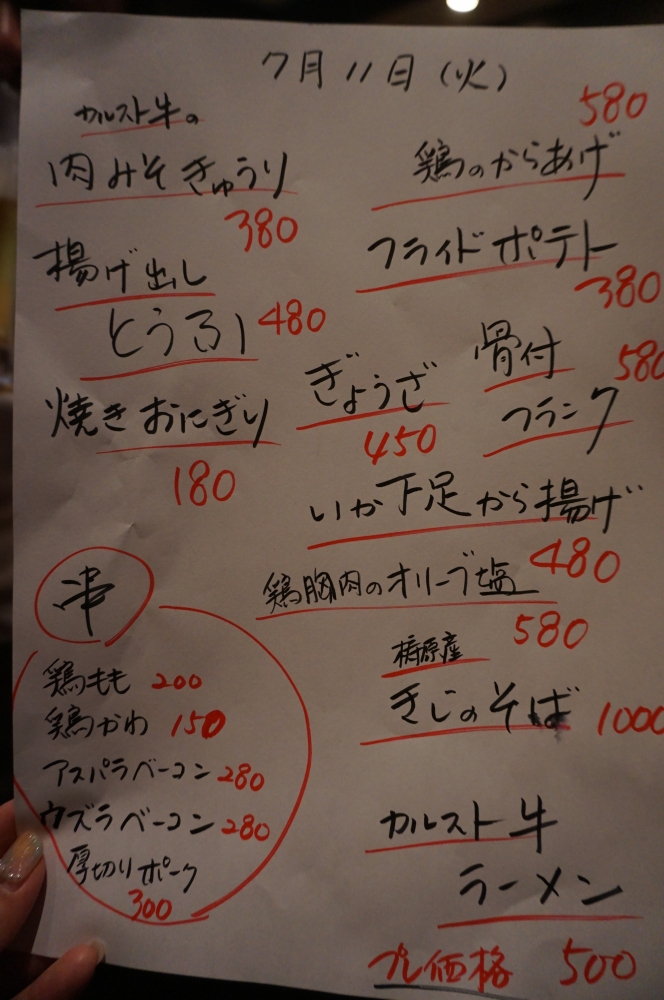 7月11日(火)
カルスト牛の
肉みそきゅうり
380
揚げ出し
とうふ 480
焼きおにぎり
180
580
鶏のからあげ
フライドポテト
380
ぎょうざ
450
骨付 580
フランク
いか下足から揚げ
480
鶏胸肉のオリーブ塩
580
梼原産
きじのそば 1000
カルスト牛
ラーメン
プレ価格 500
串
鶏もも 200
鶏かわ 150
アスパラベーコン 280
ウズラベーコン 280
厚切りポーク
300